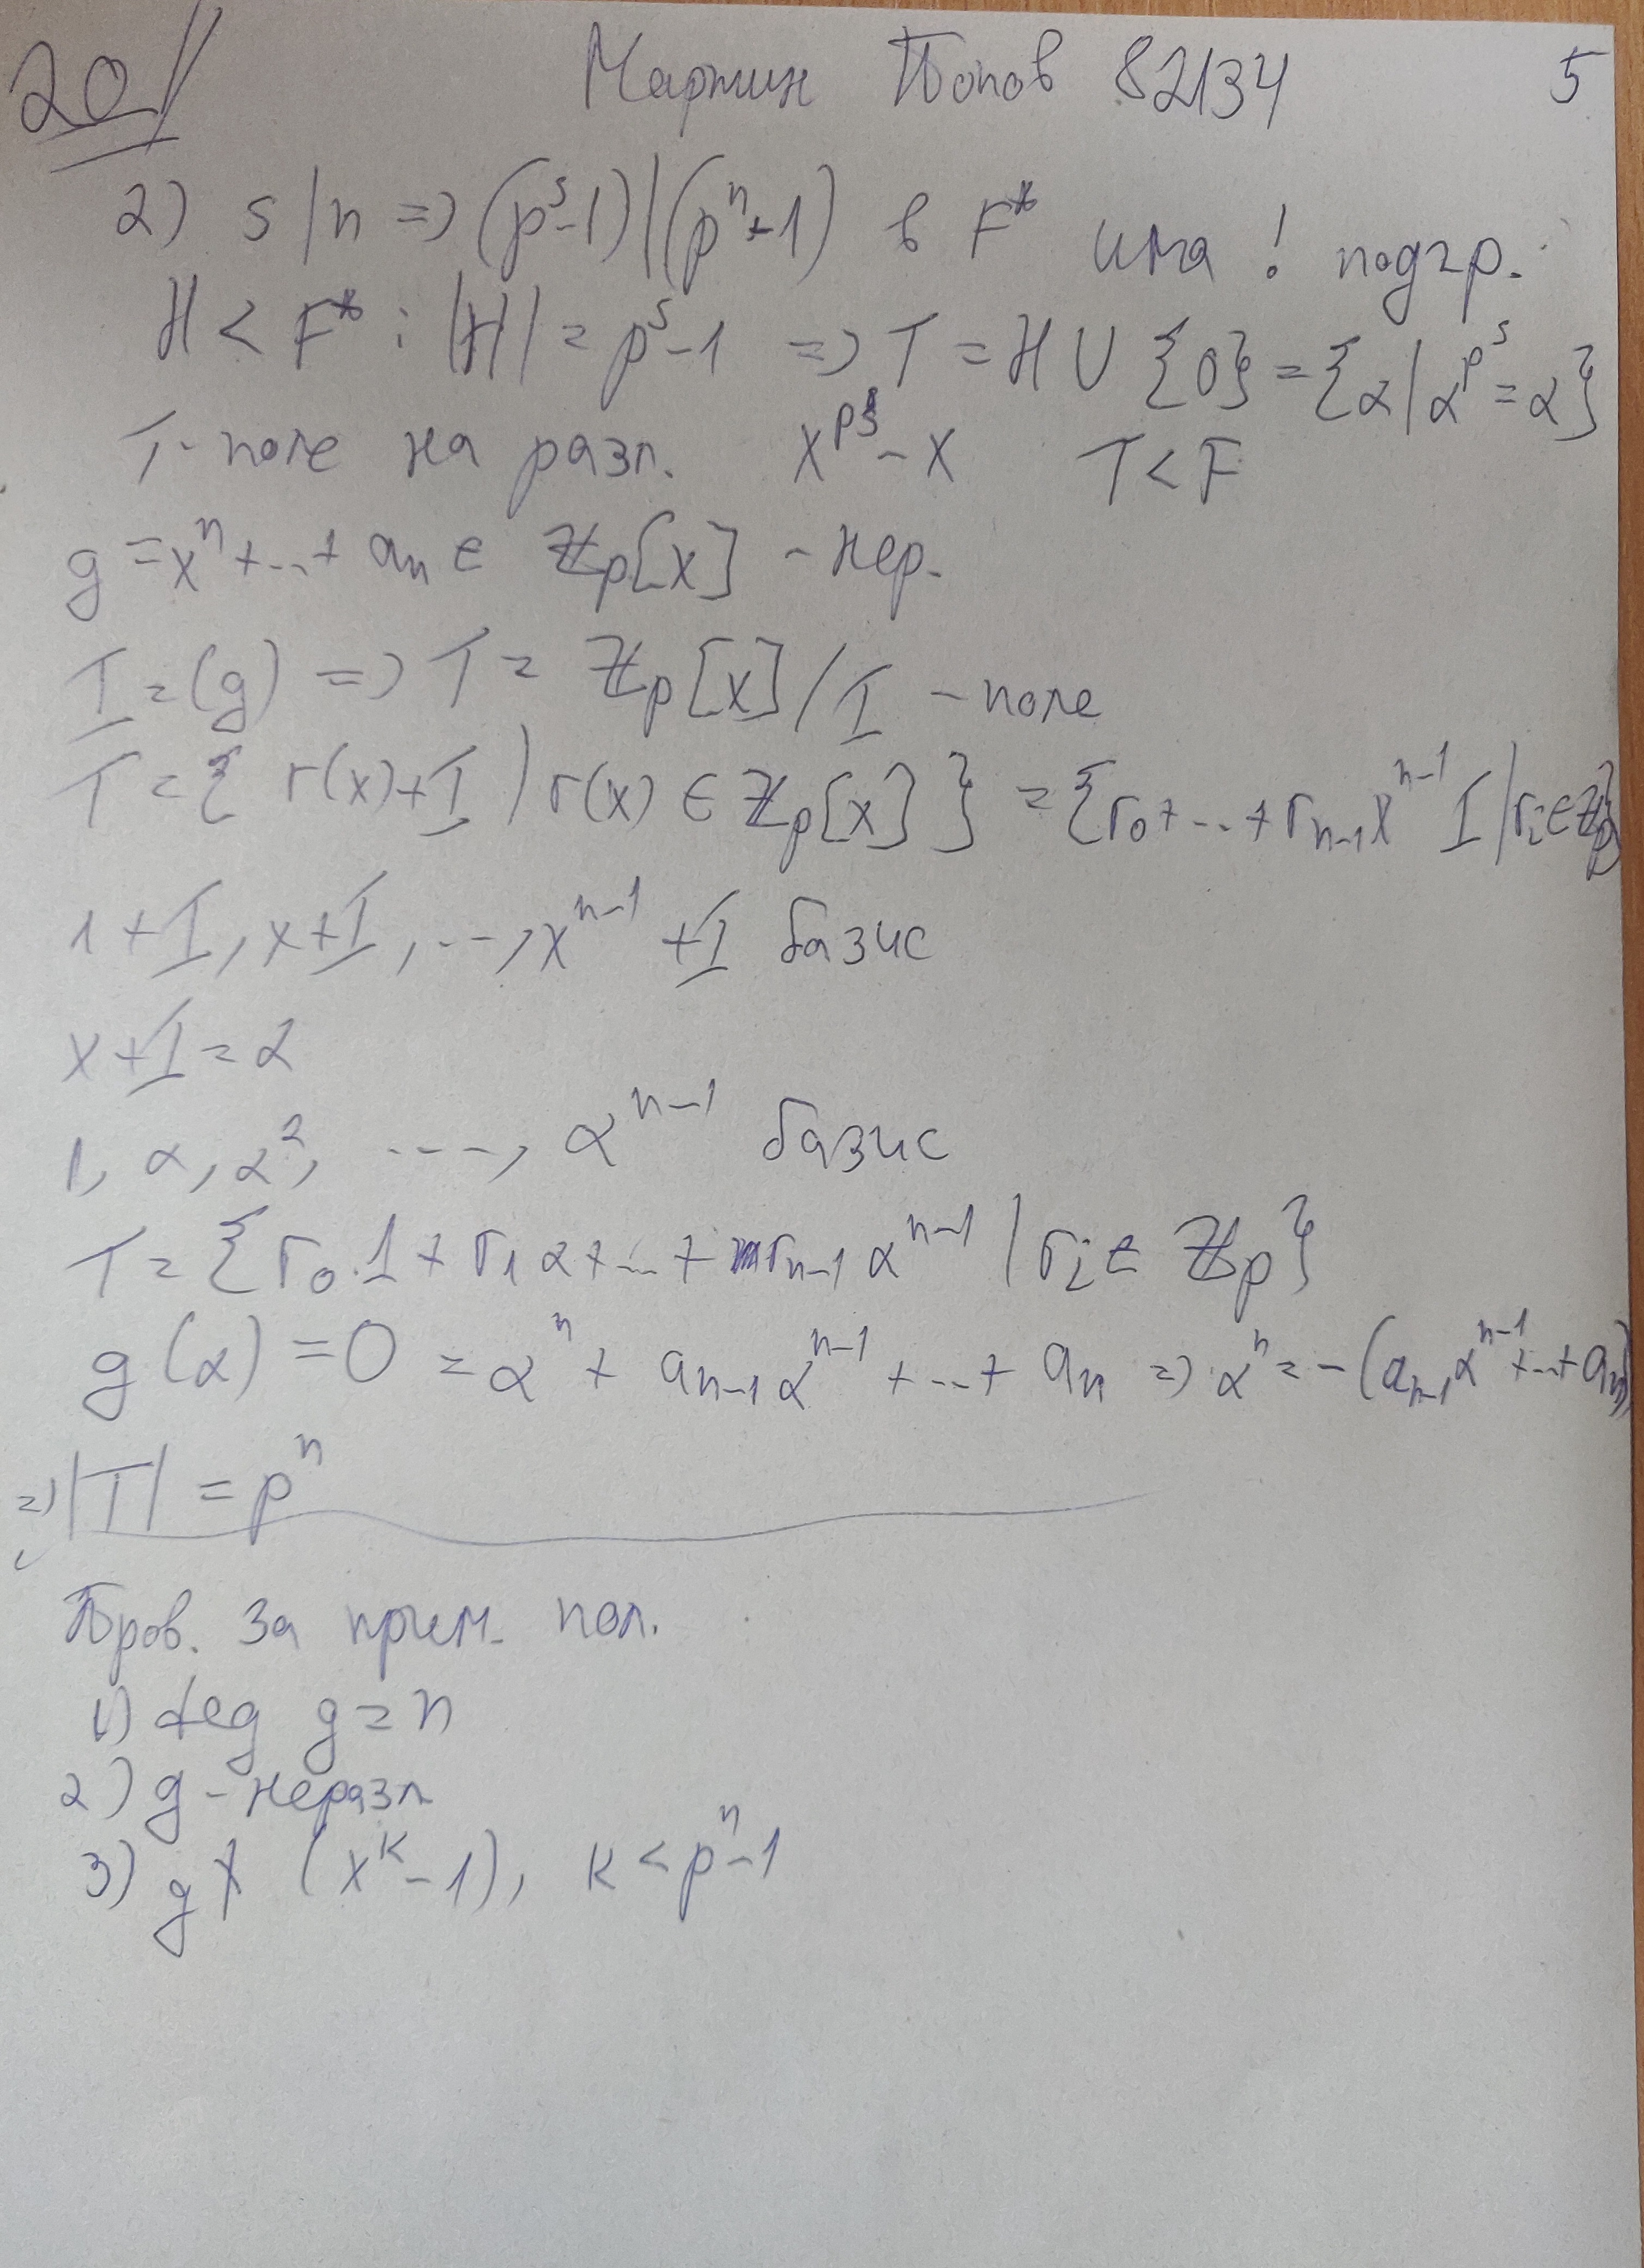 20 Мартин Попов 82134 5
2) s | n => (p^s-1) | (p^n+1) в F* има ! подгр.
H < F* : |H| = p^s-1 => T = H ∪ {0} = {α | α^{p^s} = α}
T - поле на разл. x^{p^s} - x T < F
g = x^n + ... + a_n ∈ ℤ_p[x] - нер.
I = (g) => T = ℤ_p[x] / I - поле
T = { r(x) + I | r(x) ∈ ℤ_p[x] } = {r_0 + ... + r_{n-1} x^{n-1} I | r_i ∈ ℤ_p}
1 + I, x + I, ..., x^{n-1} + I базис
x + I = α
1, α, α^2, ..., α^{n-1} базис
T = {r_0.1 + r_1 α + ... + r_{n-1} α^{n-1} | r_i ∈ ℤ_p}
g(α) = 0 = α^n + a_{n-1} α^{n-1} + ... + a_n => α^n = -(a_{n-1} α^{n-1} + ... + a_n)
=> |T| = p^n
Пров. за прим. пол.
1) deg g = n
2) g - неразл
3) g ∤ (x^k - 1), k < p^n - 1